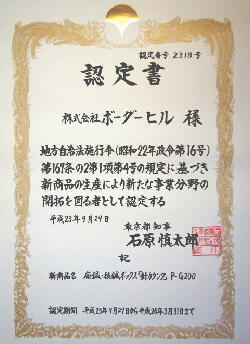 認定番号 2318号
認定書
株式会社ボーダーヒル 様
地方自治法施行令(昭和22年政令第16号)
第167条の2第1項第4号の規定に基づき
新商品の生産により新たな事業分野の
開拓を図る者として認定する
平成23年9月29日
東京都知事
石原慎太郎
記
新商品名 P-G200
認定期間 平成23年9月29日から平成26年3月31日まで